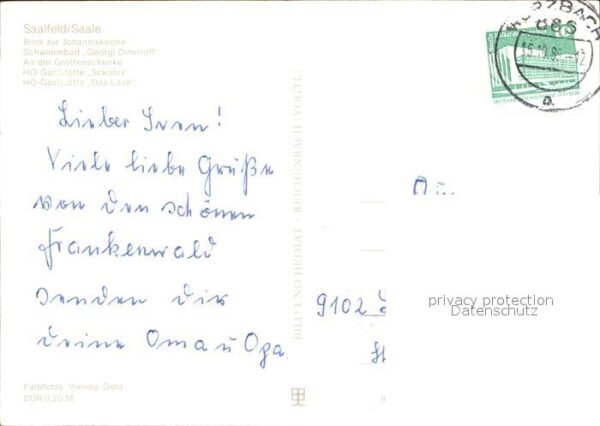 Saalfeld/Saale
Blick zur Johanniskirche
Schwimmbad „Georgi Dimitroff"
An der Grottenschenke
HO-Gaststätte „Sokolov"
HO-Gaststätte „Das Loch"
Lieber Sven!
Viele liebe Grüße
von den schönen
Frankenwald
senden dir
deine Oma u Opa
Farbfotos: Vieweg, Gera
DDR 0,20 M
BILD UND HEIMAT · REICHENBACH (VOGTL)
WURZBACH
686
15.10.8
12
a
9102
privacy protection
Datenschutz